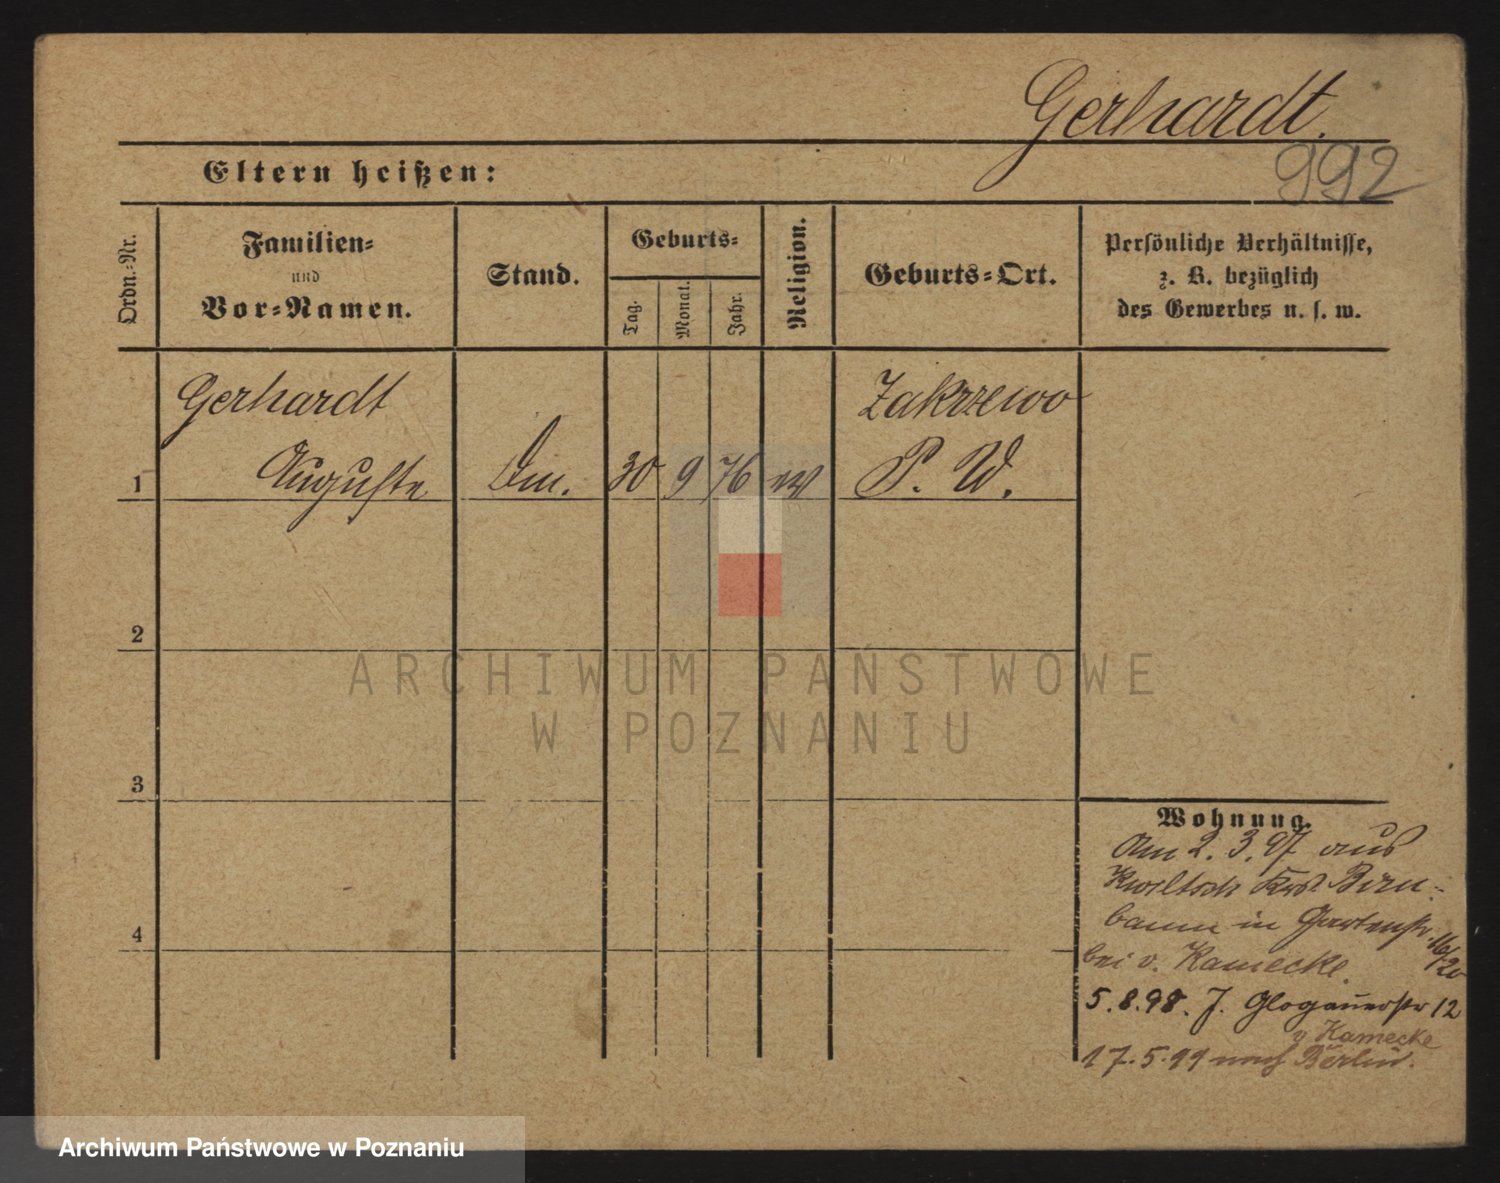 Gerhardt.
992
Eltern heißen:
Ordn.-Nr.
Familien-
und
Vor-Namen.
Stand.
Geburts-
Tag.
Monat.
Jahr.
Religion.
Geburts-Ort.
Persönliche Verhältnisse,
z. B. bezüglich
des Gewerbes u. s. w.
Gerhardt
Zakrzewo
1 Auguste 30 9 76 ev P. W.
2
3
4
Wohnung.
Am 2. 3. 97 aus
Kwiltsch Krs. Birn-
baum in Gartenstr 16/20
bei v. Kamecke.
5.8.98. J. Glogauerstr 12
v Kamecke
17.5.99 nach Berlin.
ARCHIWUM PAŃSTWOWE
W POZNANIU
Archiwum Państwowe w Poznaniu